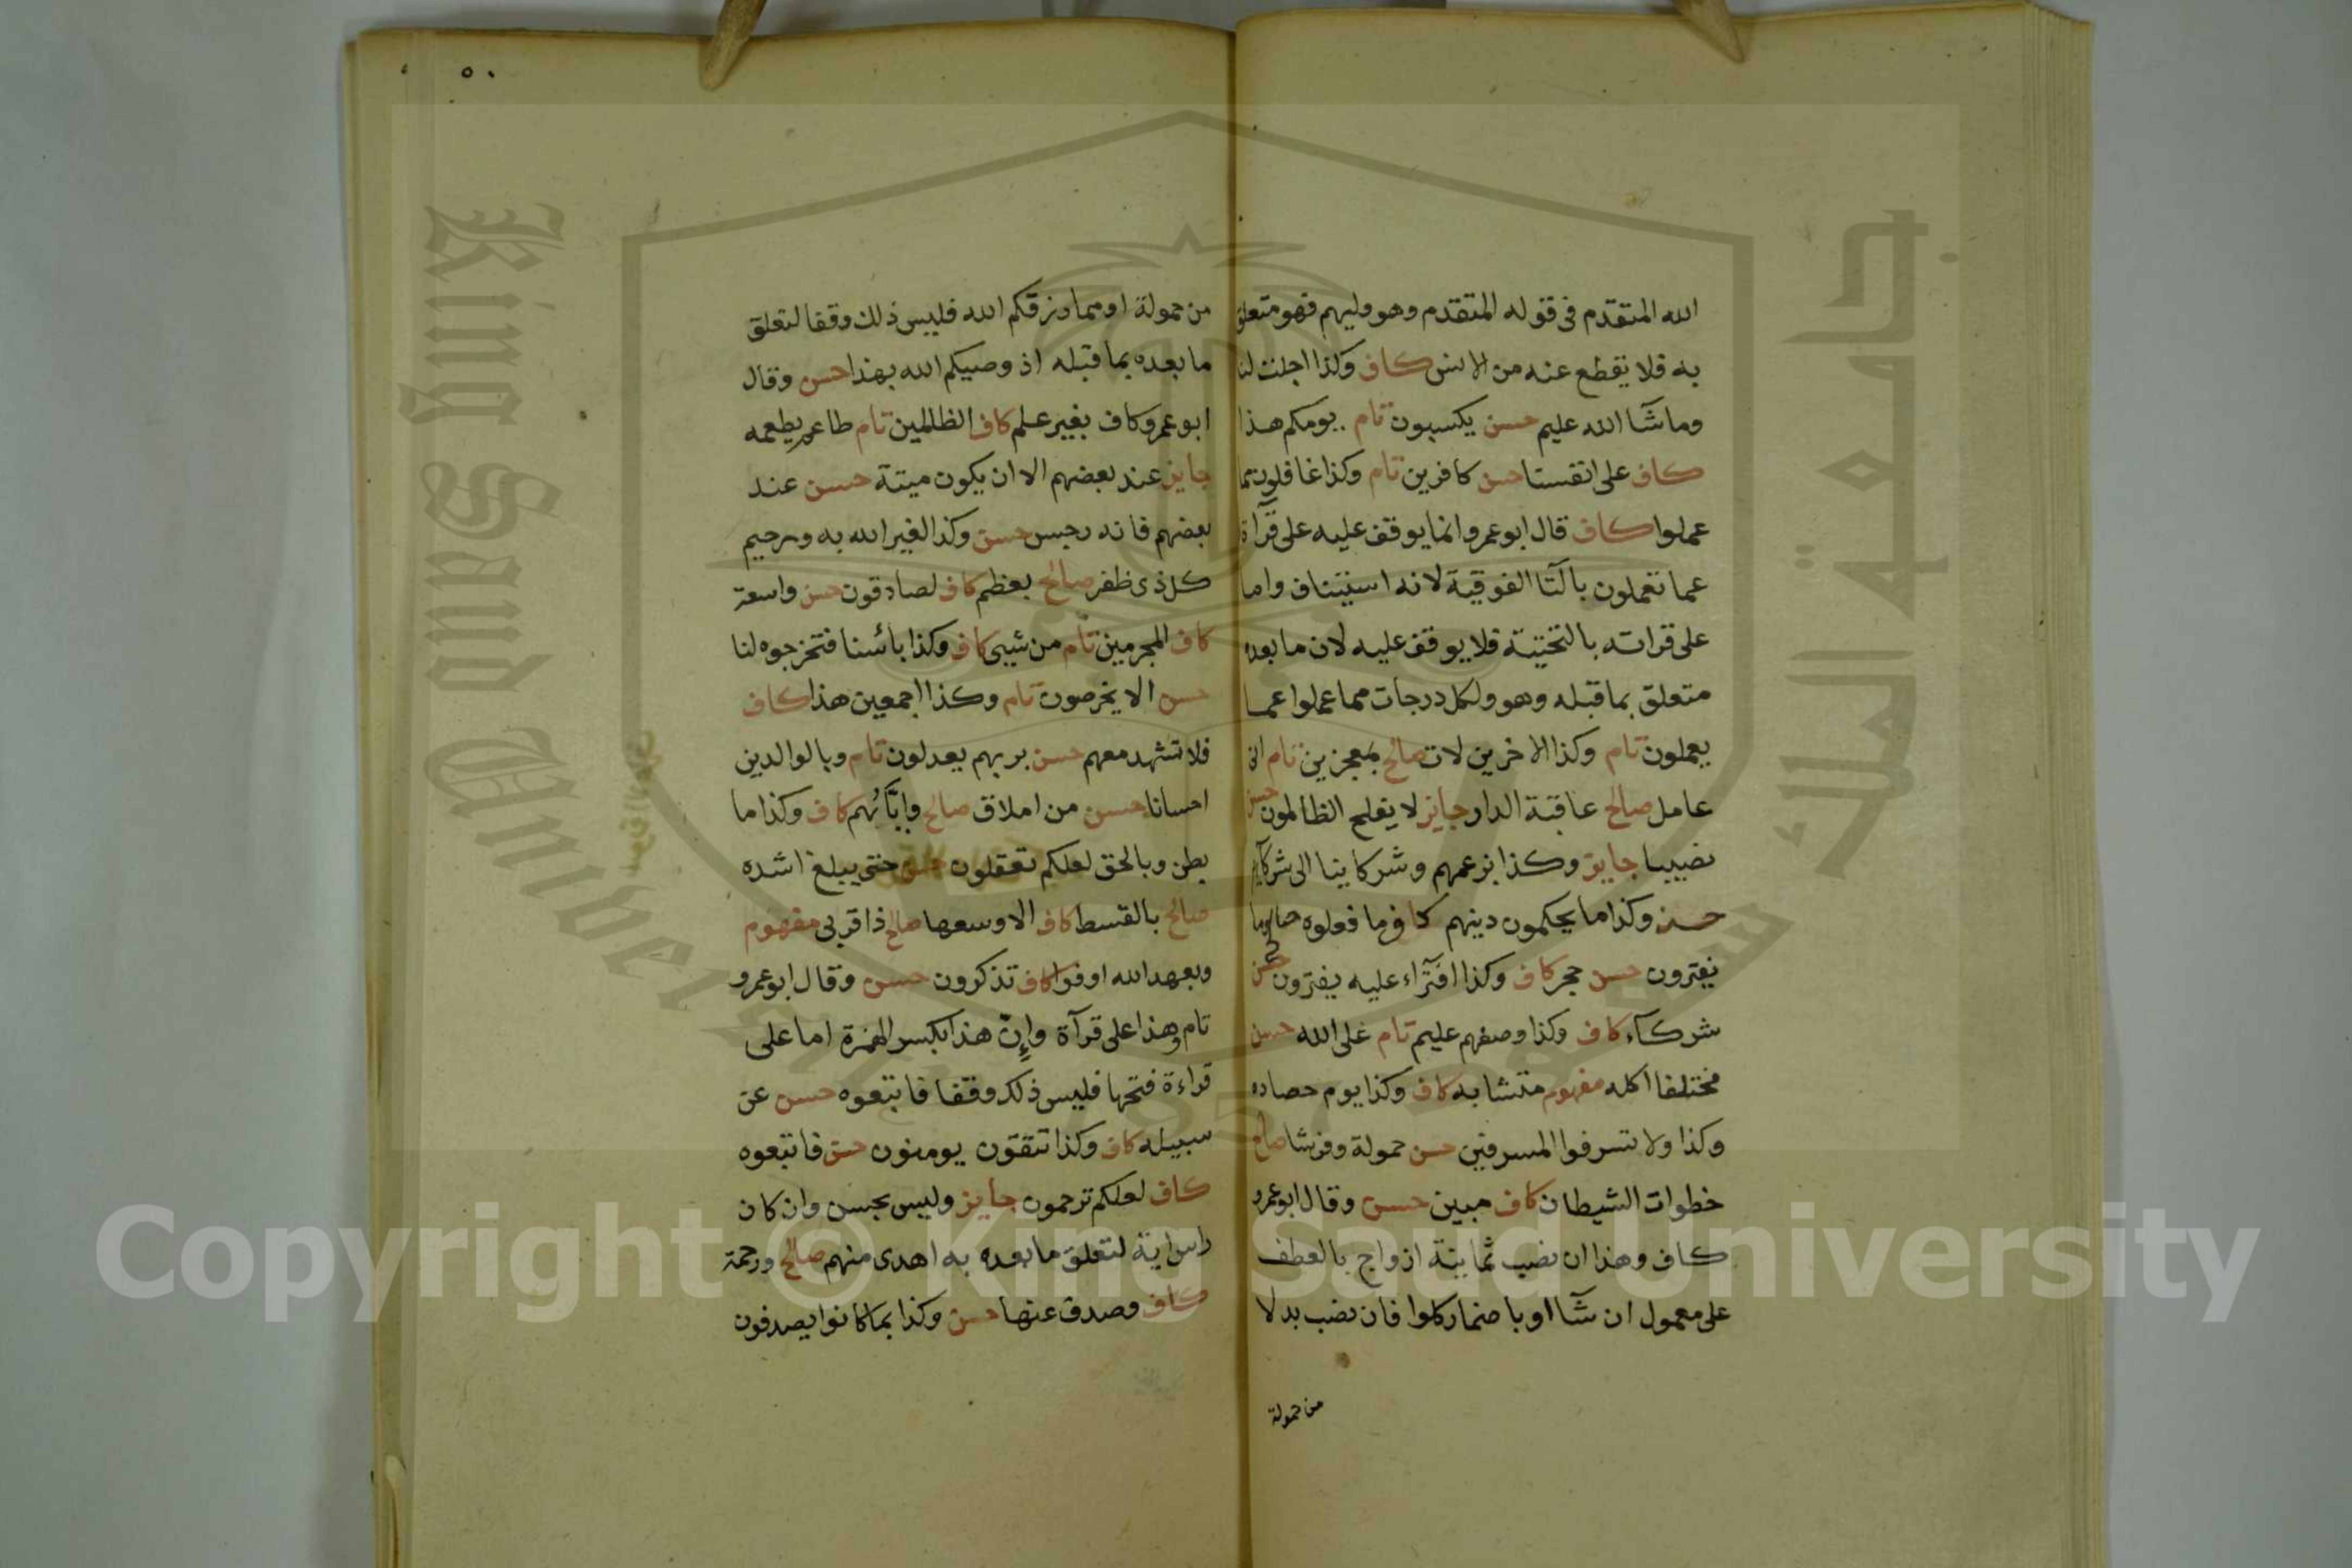 الله المتقدم فى قوله المتقدم وهو وليهم فهو متعلق
به فلا يقطع عنه من الانس كاف وكذا اجلت لنا
وما شآ الله عليم حسن يكسبون تام يومكم هذا
كاف على انفسنا حسن كافرين تام وكذا غافلون مما
عملوا كاف قال ابو عمرو انما يوقف عليه على قرآة
عما تعملون بالتآ الفوقية لانه استيناف واما
على قراته بالتحتيتة فلا يوقف عليه لان ما بعده
متعلق بما قبله وهو ولكل درجات مما عملوا عما
يعملون تام وكذا الاخرين لات صالح بمعجزين تام انى
عامل صالح عاقبة الدار جايز لا يفلح الظالمون حسن
نصيبا جايز وكذا بزعمهم وشركاينا الى شركآيهم
حسن وكذا ما يحكمون دينهم كاف وما فعلوه صالح وما
يفترون حسن حجر كاف وكذا افترآء عليه يفترون حسن
شركآء كاف وكذا وصفهم عليم تام على الله حسن
مختلفا اكله مفهوم متشابه كاف وكذا يوم حصاده
وكذا ولا تسرفوا المسرفين حسن حمولة وفرشا صالح
خطوات الشيطان كاف مبين حسن وقال ابو عمرو
كاف وهذا ان نصب ثمانية ازواج بالعطف
على معمول ان شآ او باضمار كلوا فان نصب بدلا
من حمولة
٥٠
من حمولة او مما رزقكم الله فليس ذلك وقفا لتعلق
ما بعده بما قبله اذ وصيكم الله بهذا حسن وقال
ابو عمرو كاف بغير علم كاف الظالمين تام طاعم يطعمه
جايز عند بعضهم الا ان يكون ميتة حسن عند
بعضهم فانه رجس حسن وكذا لغير الله به ورحيم
كل ذى ظفر صالح بعظم كاف لصادقون حسن واسعة
كاف المجرمين تام من شيى كاف وكذا بائسنا فتخرجوه لنا
حسن الا يخرصون تام وكذا اجمعين هذا كاف
فلا تشهد معهم حسن بربهم يعدلون تام وبالوالدين
احسانا حسن من املاق صالح وإيّائهم كاف وكذا ما
بطن وبالحق لعلكم تعقلون حسن حتى يبلغ اشده
صالح بالقسط كاف الا وسعها صالح ذا قربى مفهوم
وبعهد الله اوفوا كاف تذكرون حسن وقال ابو عمرو
تام وهذا على قرآة وإنّ هذا بكسر الهمزة اما على
قراءة فتحها فليس ذلك وقفا فاتبعوه حسن عن
سبيله كاف وكذا تتقون يومنون حسن فاتبعوه
كاف لعلكم ترحمون جايز وليس بحسن وان كان
راس اية لتعلق ما بعده به اهدى منهم صالح ورحمة
كاف وصدف عنها حسن وكذا بما كانوا يصدفون
جامعة الملك سعود
King Saud University
Copyright © King Saud University